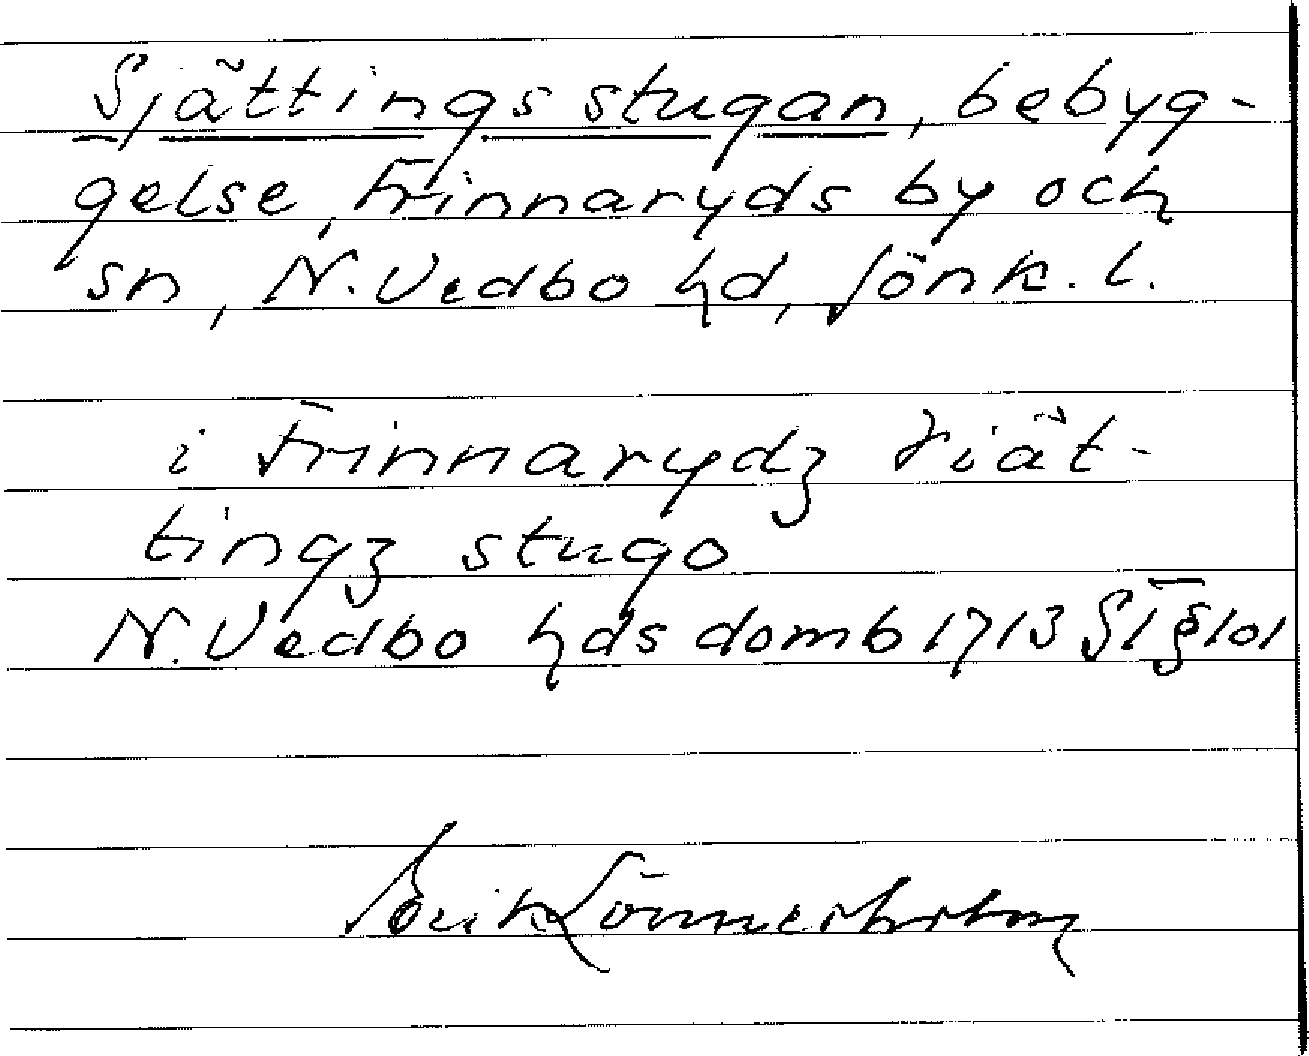 Sjättingsstugan, bebyg-
gelse, Frinnaryds by och
sn, N. Vedbo hd, Jönk. l.
i Frinnarydz siät-
tingz stugo
N. Vedbo hds domb 1713 St § 101
Erik